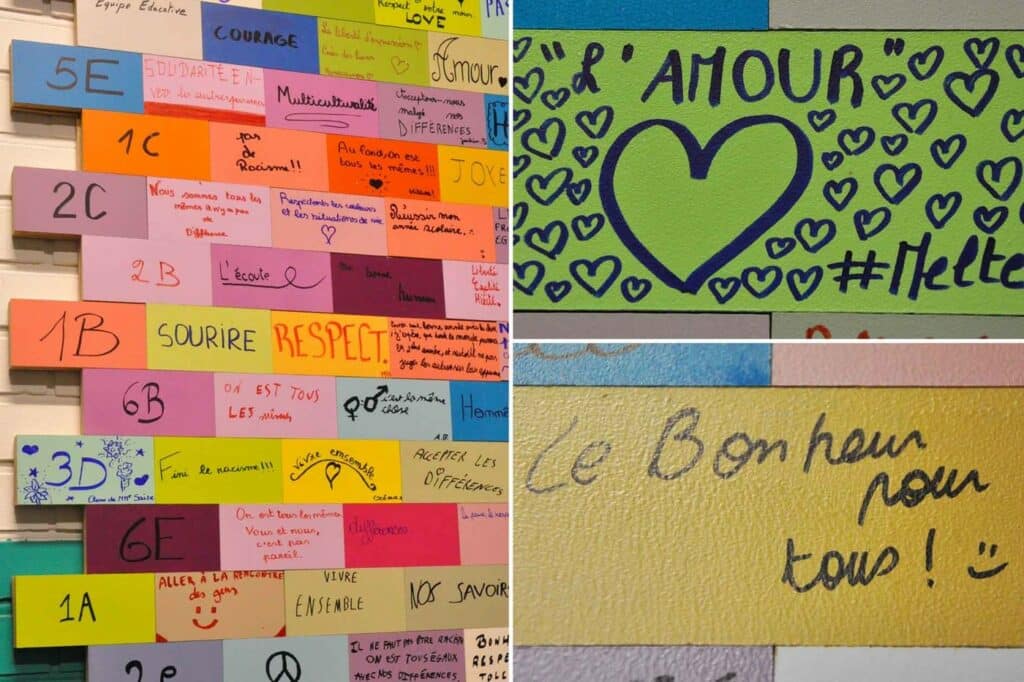 Equipe Educative
COURAGE
La liberté d'expression
LOVE
Amour
5E
SOLIDARITÉ EN-
VERS les autres personnes
Multiculturalité
Acceptons-nous
malgré nos
DIFFÉRENCES
1C
pas
de
Racisme!!
Au fond, on est
tous les mêmes!!!
JOYE
2C
Nous sommes tous les
mêmes il n'y a pas
de
Différence
Respectons les couleurs
et les situations de vie
Réussir mon
année scolaire.
2B
L'écoute
Liberté
Egalité
1B
SOURIRE
RESPECT.
6B
ON EST TOUS
LES mêmes
c'est la même
chose
A.B.
Homme
3D
Classe de Mme Saise
Fini le racisme!!!
Vivre ensemble
ACCEPTER LES
DIFFÉRENCES
6E
On est tous les mêmes
Vous et nous,
c'est pas
pareil.
différences
1A
ALLER À LA RENCONTRE
des gens
VIVRE
ENSEMBLE
NOS SAVOIR
IL NE FAUT PAS ÊTRE RACIS
ON EST TOUS EGAUX
AVEC NOS DIFFÉRENCES.
BONH
RESPE
"L'AMOUR"
#Melte
Le Bonheur
pour
tous! :)